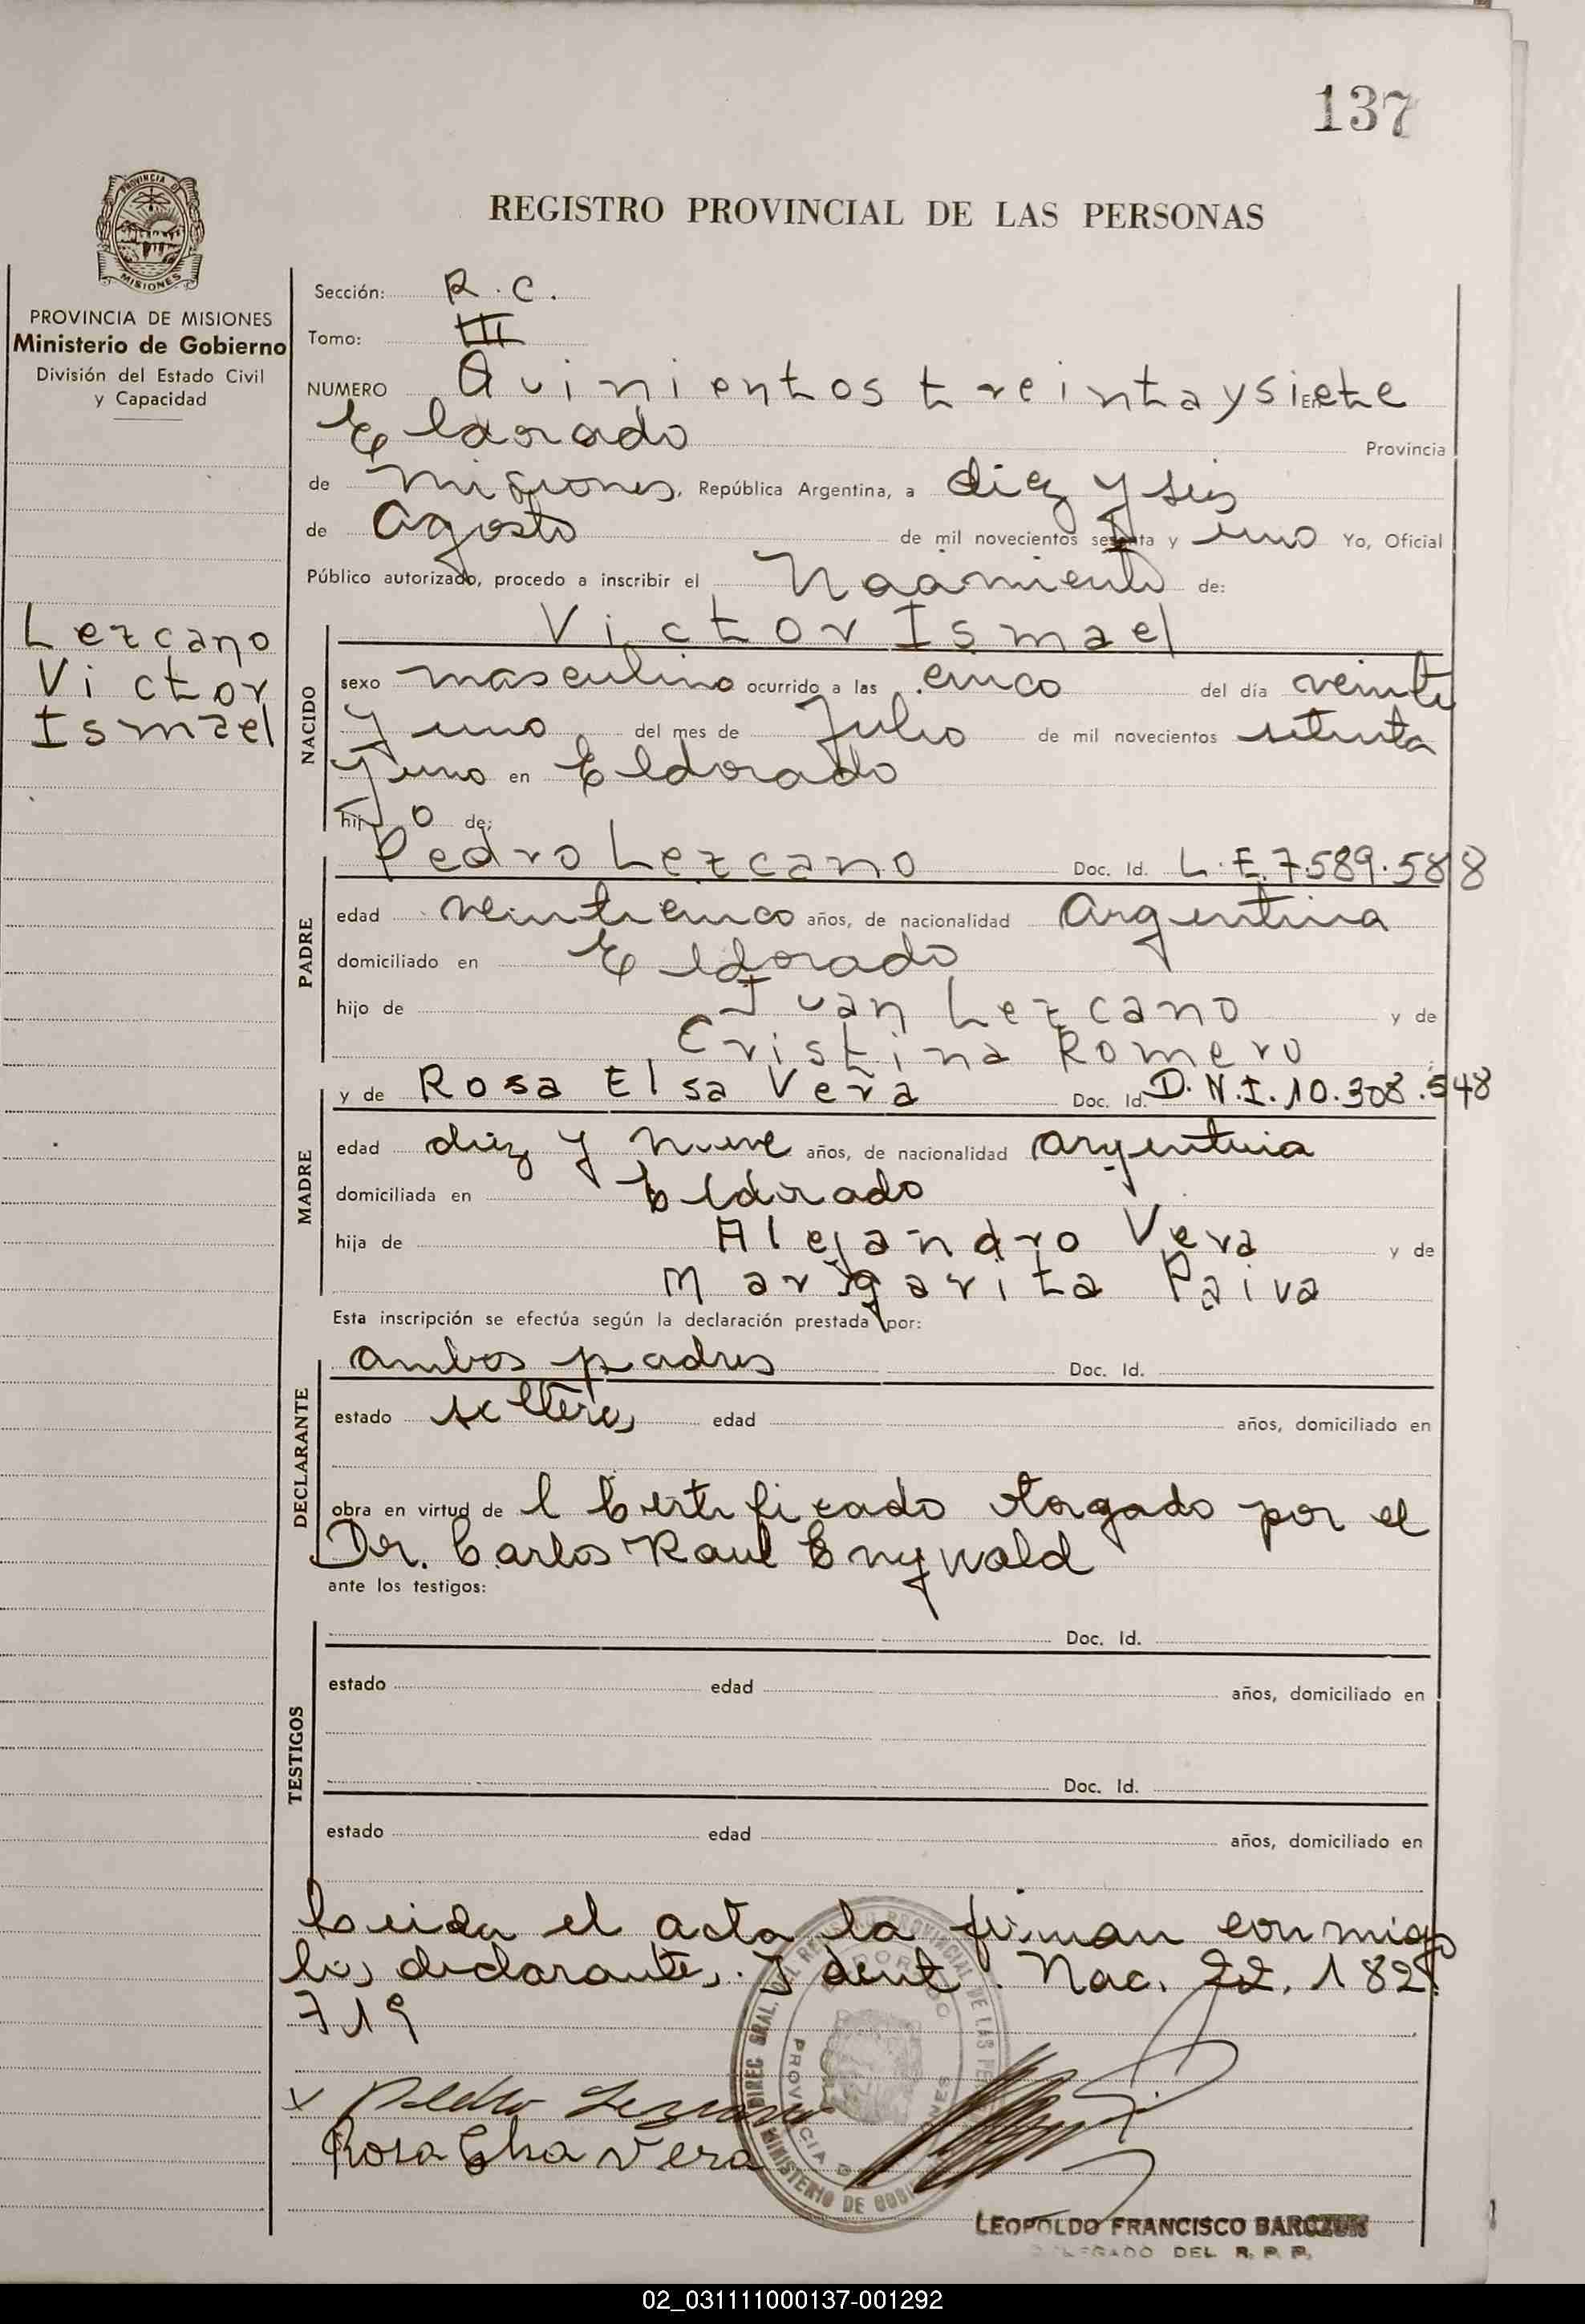 137
PROVINCIA DE MISIONES
REGISTRO PROVINCIAL DE LAS PERSONAS
PROVINCIA DE MISIONES
Ministerio de Gobierno
División del Estado Civil
y Capacidad
Lezcano
Victor
Ismael
Sección: R.C.
Tomo: III
NUMERO Quinientos treintaysiete En
Eldorado Provincia
de Misiones, República Argentina, a diez y seis
de Agosto de mil novecientos setenta y uno Yo, Oficial
Público autorizado, procedo a inscribir el Nacimiento de:
NACIDO
Victor Ismael
sexo masculino ocurrido a las cinco del día veinte
y uno del mes de Julio de mil novecientos setenta
y uno en Eldorado
hijo de:
PADRE
Pedro Lezcano Doc. Id. L.E.7.589.588
edad veinticinco años, de nacionalidad Argentina
domiciliado en Eldorado
hijo de Juan Lezcano y de
Cristina Romero
MADRE
y de Rosa Elsa Vera Doc. Id. D.N.I.10.308.548
edad diez y nueve años, de nacionalidad argentina
domiciliada en Eldorado
hija de Alejandro Vera y de
Margarita Paiva
Esta inscripción se efectúa según la declaración prestada por:
DECLARANTE
ambos padres Doc. Id.
estado solteros edad años, domiciliado en
obra en virtud de l Certificado otorgado por el
Dr. Carlos Raul
ante los testigos:
TESTIGOS
Doc. Id.
estado edad años, domiciliado en
Doc. Id.
estado edad años, domiciliado en
Leida el acta la firman conmigo
los declarantes. Ident. Nac. 22.182.
719
Pedro Lezcano
Rosa Elsa Vera
DIREC. GRAL. DEL REGISTRO PROVINCIAL DE LAS PE
ELDORADO
PROVINCIA DE MISIONES
MINISTERIO DE GOBI
LEOPOLDO FRANCISCO
DELEGADO DEL R. P. P.
02_031111000137-001292